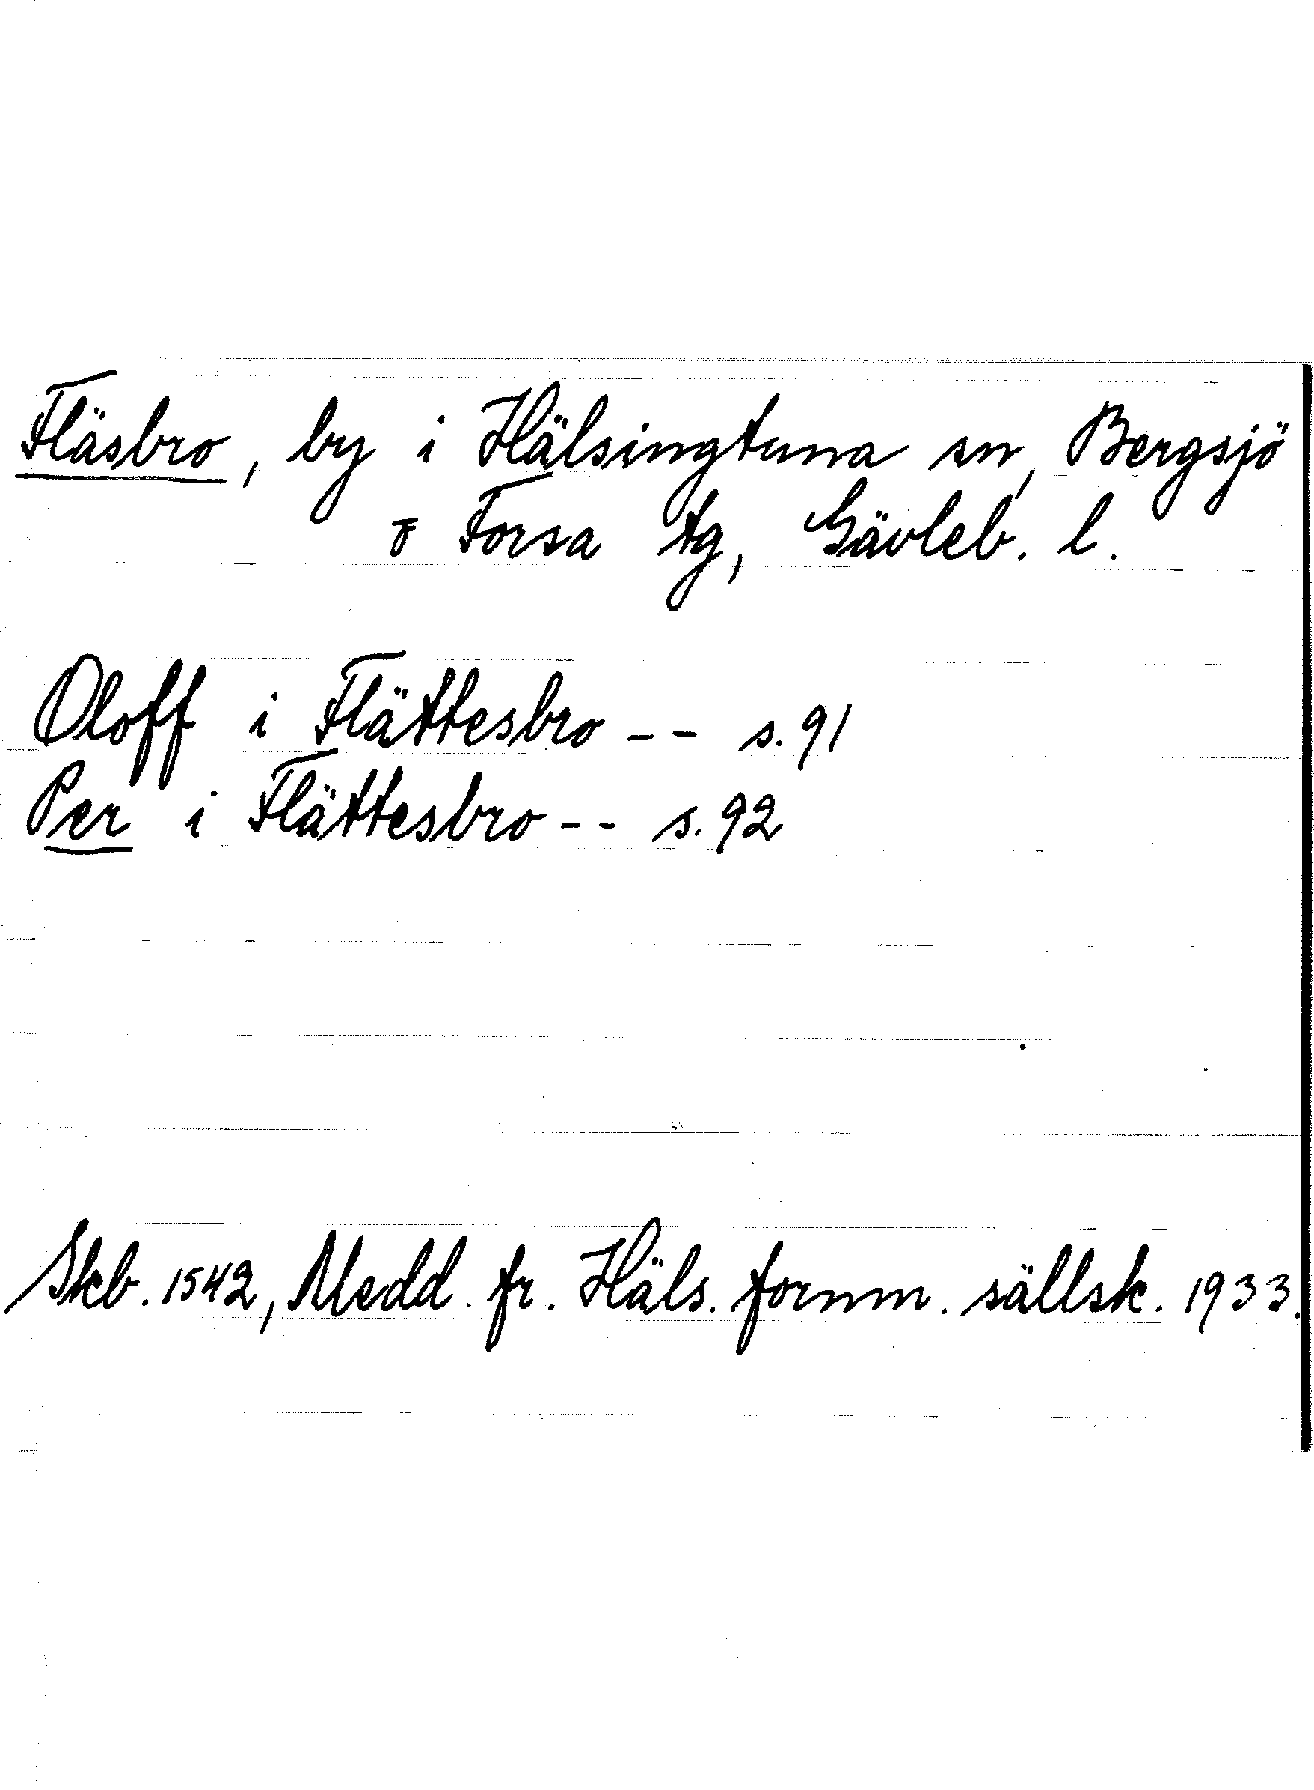 Fläsbro, by i Hälsingtuna sn, Bergsjö
o Forsa tg, Gävleb. l.
Oloff i Flättesbro -- s. 91
Per i Flättesbro -- s. 92
Skb. 1542, Medd. fr. Häls. fornm. sällsk. 1933.